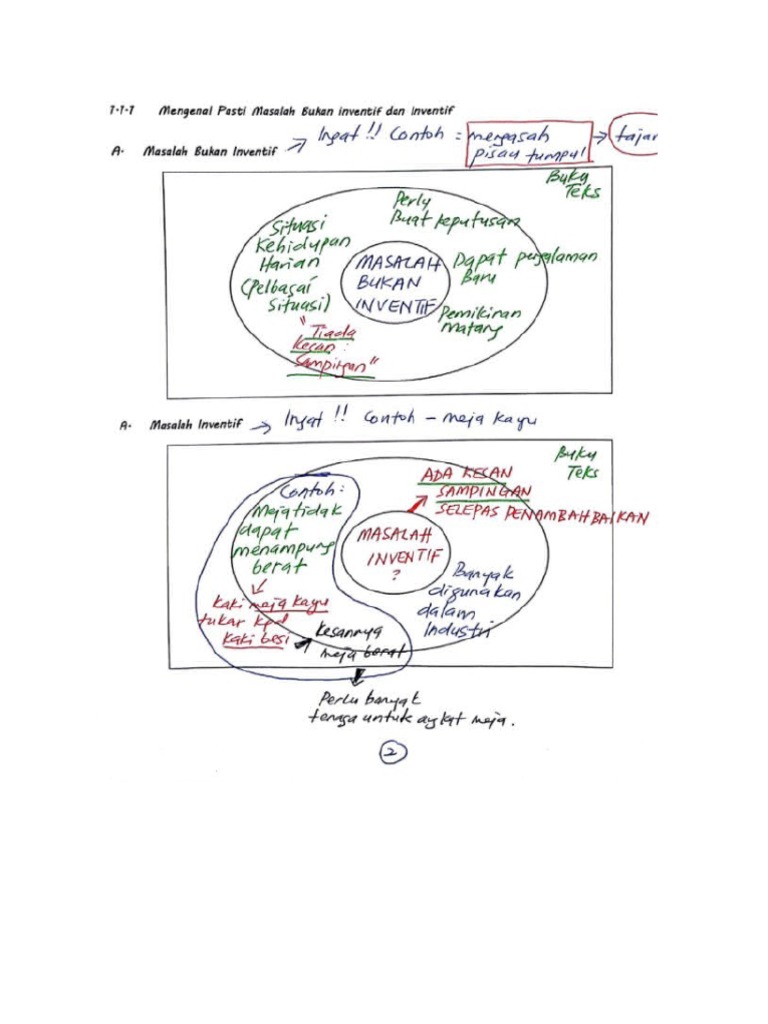 1.1.1 Mengenal Pasti Masalah Bukan inventif dan inventif
Ingat !! Contoh : mengasah → tajam
pisau tumpul
A. Masalah Bukan Inventif
Buku
Teks
Perlu
Buat keputusan
Situasi
Kehidupan
Harian
(Pelbagai
Situasi)
"Tiada
Kesan
Sampingan"
MASALAH
BUKAN
INVENTIF
Dapat pengalaman
Baru
Pemikiran
matang
A. Masalah Inventif → Ingat !! Contoh - meja kayu
Buku
Teks
ADA KESAN
SAMPINGAN
SELEPAS PENAMBAHBAIKAN
Contoh:
Meja tidak
dapat
menampung
berat
kaki meja kayu
tukar kpd
kaki besi
MASALAH
INVENTIF
?
Banyak
digunakan
dalam
Industri
Kesannya
meja berat
Perlu banyak
tenaga untuk angkat meja.
2